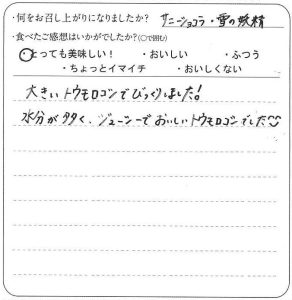 ・何をお召し上がりになりましたか? サニーショコラ・雪の妖精
・食べたご感想はいかがでしたか?(○で囲む)
・とっても美味しい! ・おいしい ・ふつう
・ちょっとイマイチ ・おいしくない
大きいトウモロコシでびっくりしました!
水分が多く、ジューシーでおいしいトウモロコシでした